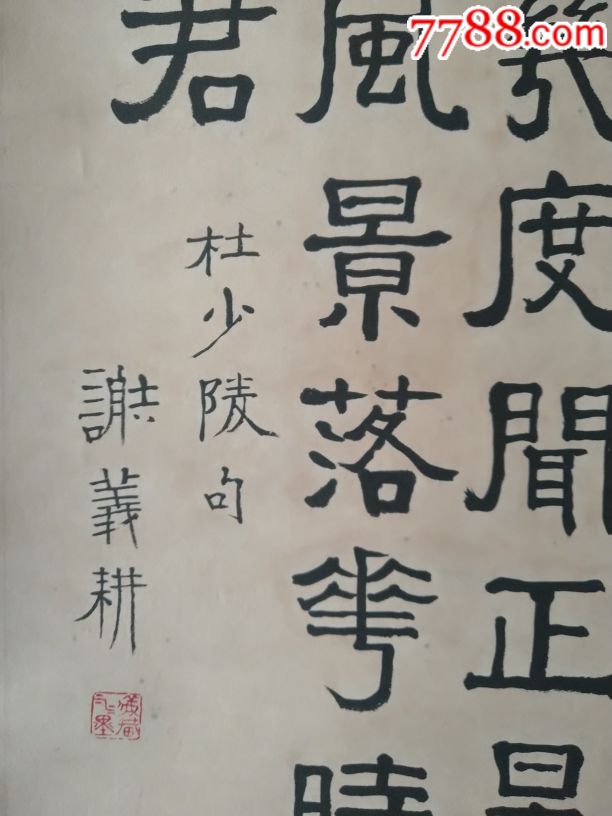 7788.com
幾度聞正是
風景落花時
君
杜少陵句
謝義耕